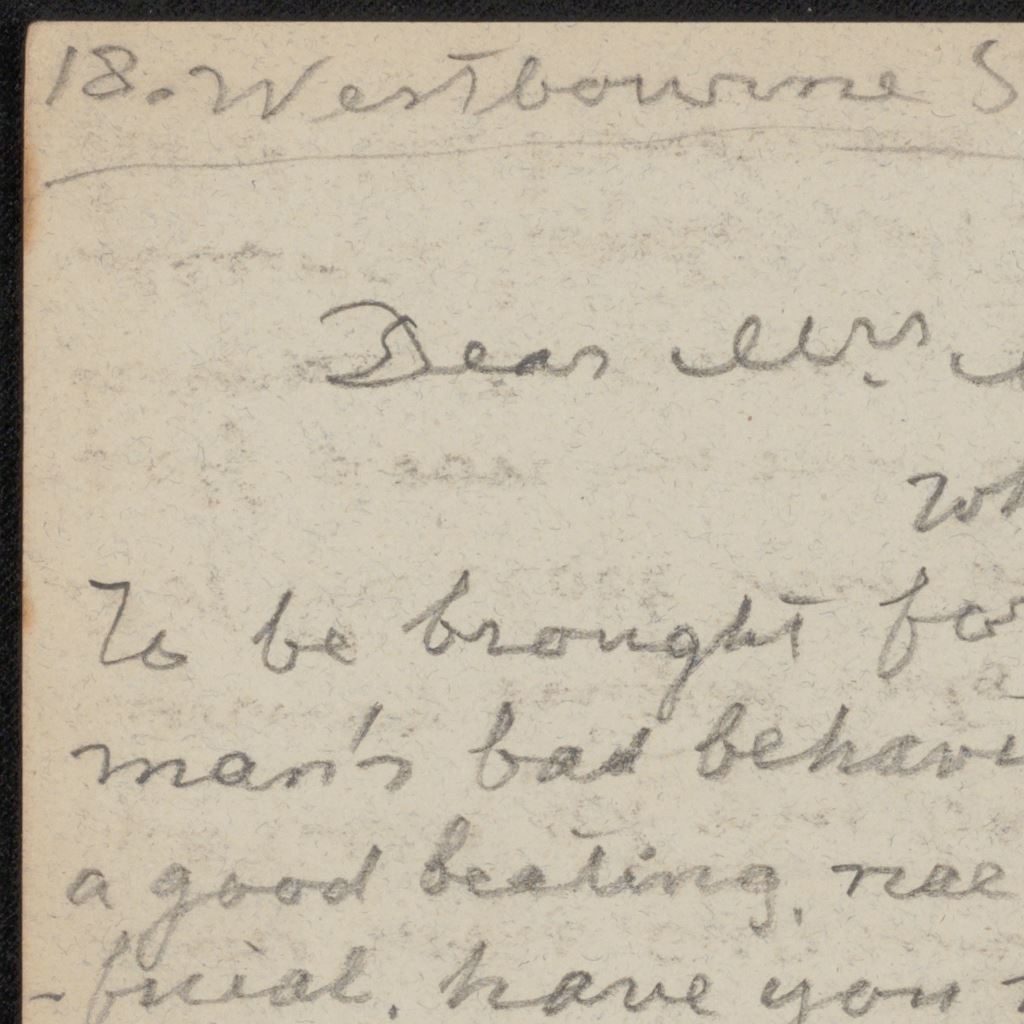 18. Westbourne S
Dear Mrs.
Wh
To be brought fo
man's bad behavi
a good beating,
have you